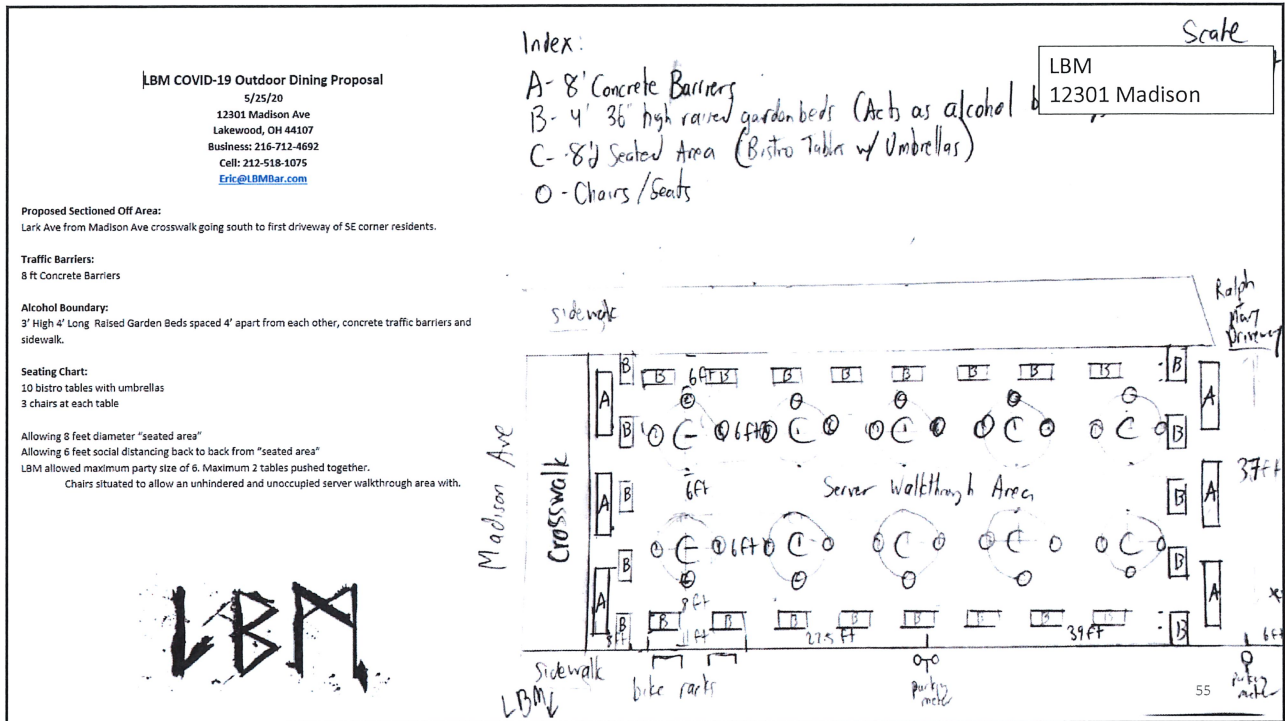 LBM COVID-19 Outdoor Dining Proposal
5/25/20
12301 Madison Ave
Lakewood, OH 44107
Business: 216-712-4692
Cell: 212-518-1075
Eric@LBMBar.com
Proposed Sectioned Off Area:
Lark Ave from Madison Ave crosswalk going south to first driveway of SE corner residents.
Traffic Barriers:
8 ft Concrete Barriers
Alcohol Boundary:
3' High 4' Long Raised Garden Beds spaced 4' apart from each other, concrete traffic barriers and
sidewalk.
Seating Chart:
10 bistro tables with umbrellas
3 chairs at each table
Allowing 8 feet diameter "seated area"
Allowing 6 feet social distancing back to back from "seated area"
LBM allowed maximum party size of 6. Maximum 2 tables pushed together.
Chairs situated to allow an unhindered and unoccupied server walkthrough area with.
LBM
Scale
LBM
12301 Madison
Index:
A- 8' Concrete Barriers
B- 4' 36" high raised garden beds (Acts as alcohol
C- 8'd Seated Area (Bistro Tables w/ Umbrellas)
O - Chairs/Seats
sidewalk
Ralph
Driveway
B B 6ft B B B B B B B B
A A
B C 6ft C C C C B
Madison Ave
Crosswalk
A B 6ft Server Walkthrough Area B A 37ft
B C 6ft C C C C B
A A
8ft
B B B B B B B B B B
8ft 11ft 27.5 ft 39ft 6ft
sidewalk
bike racks
parking
meter
parking
meter
LBM
55